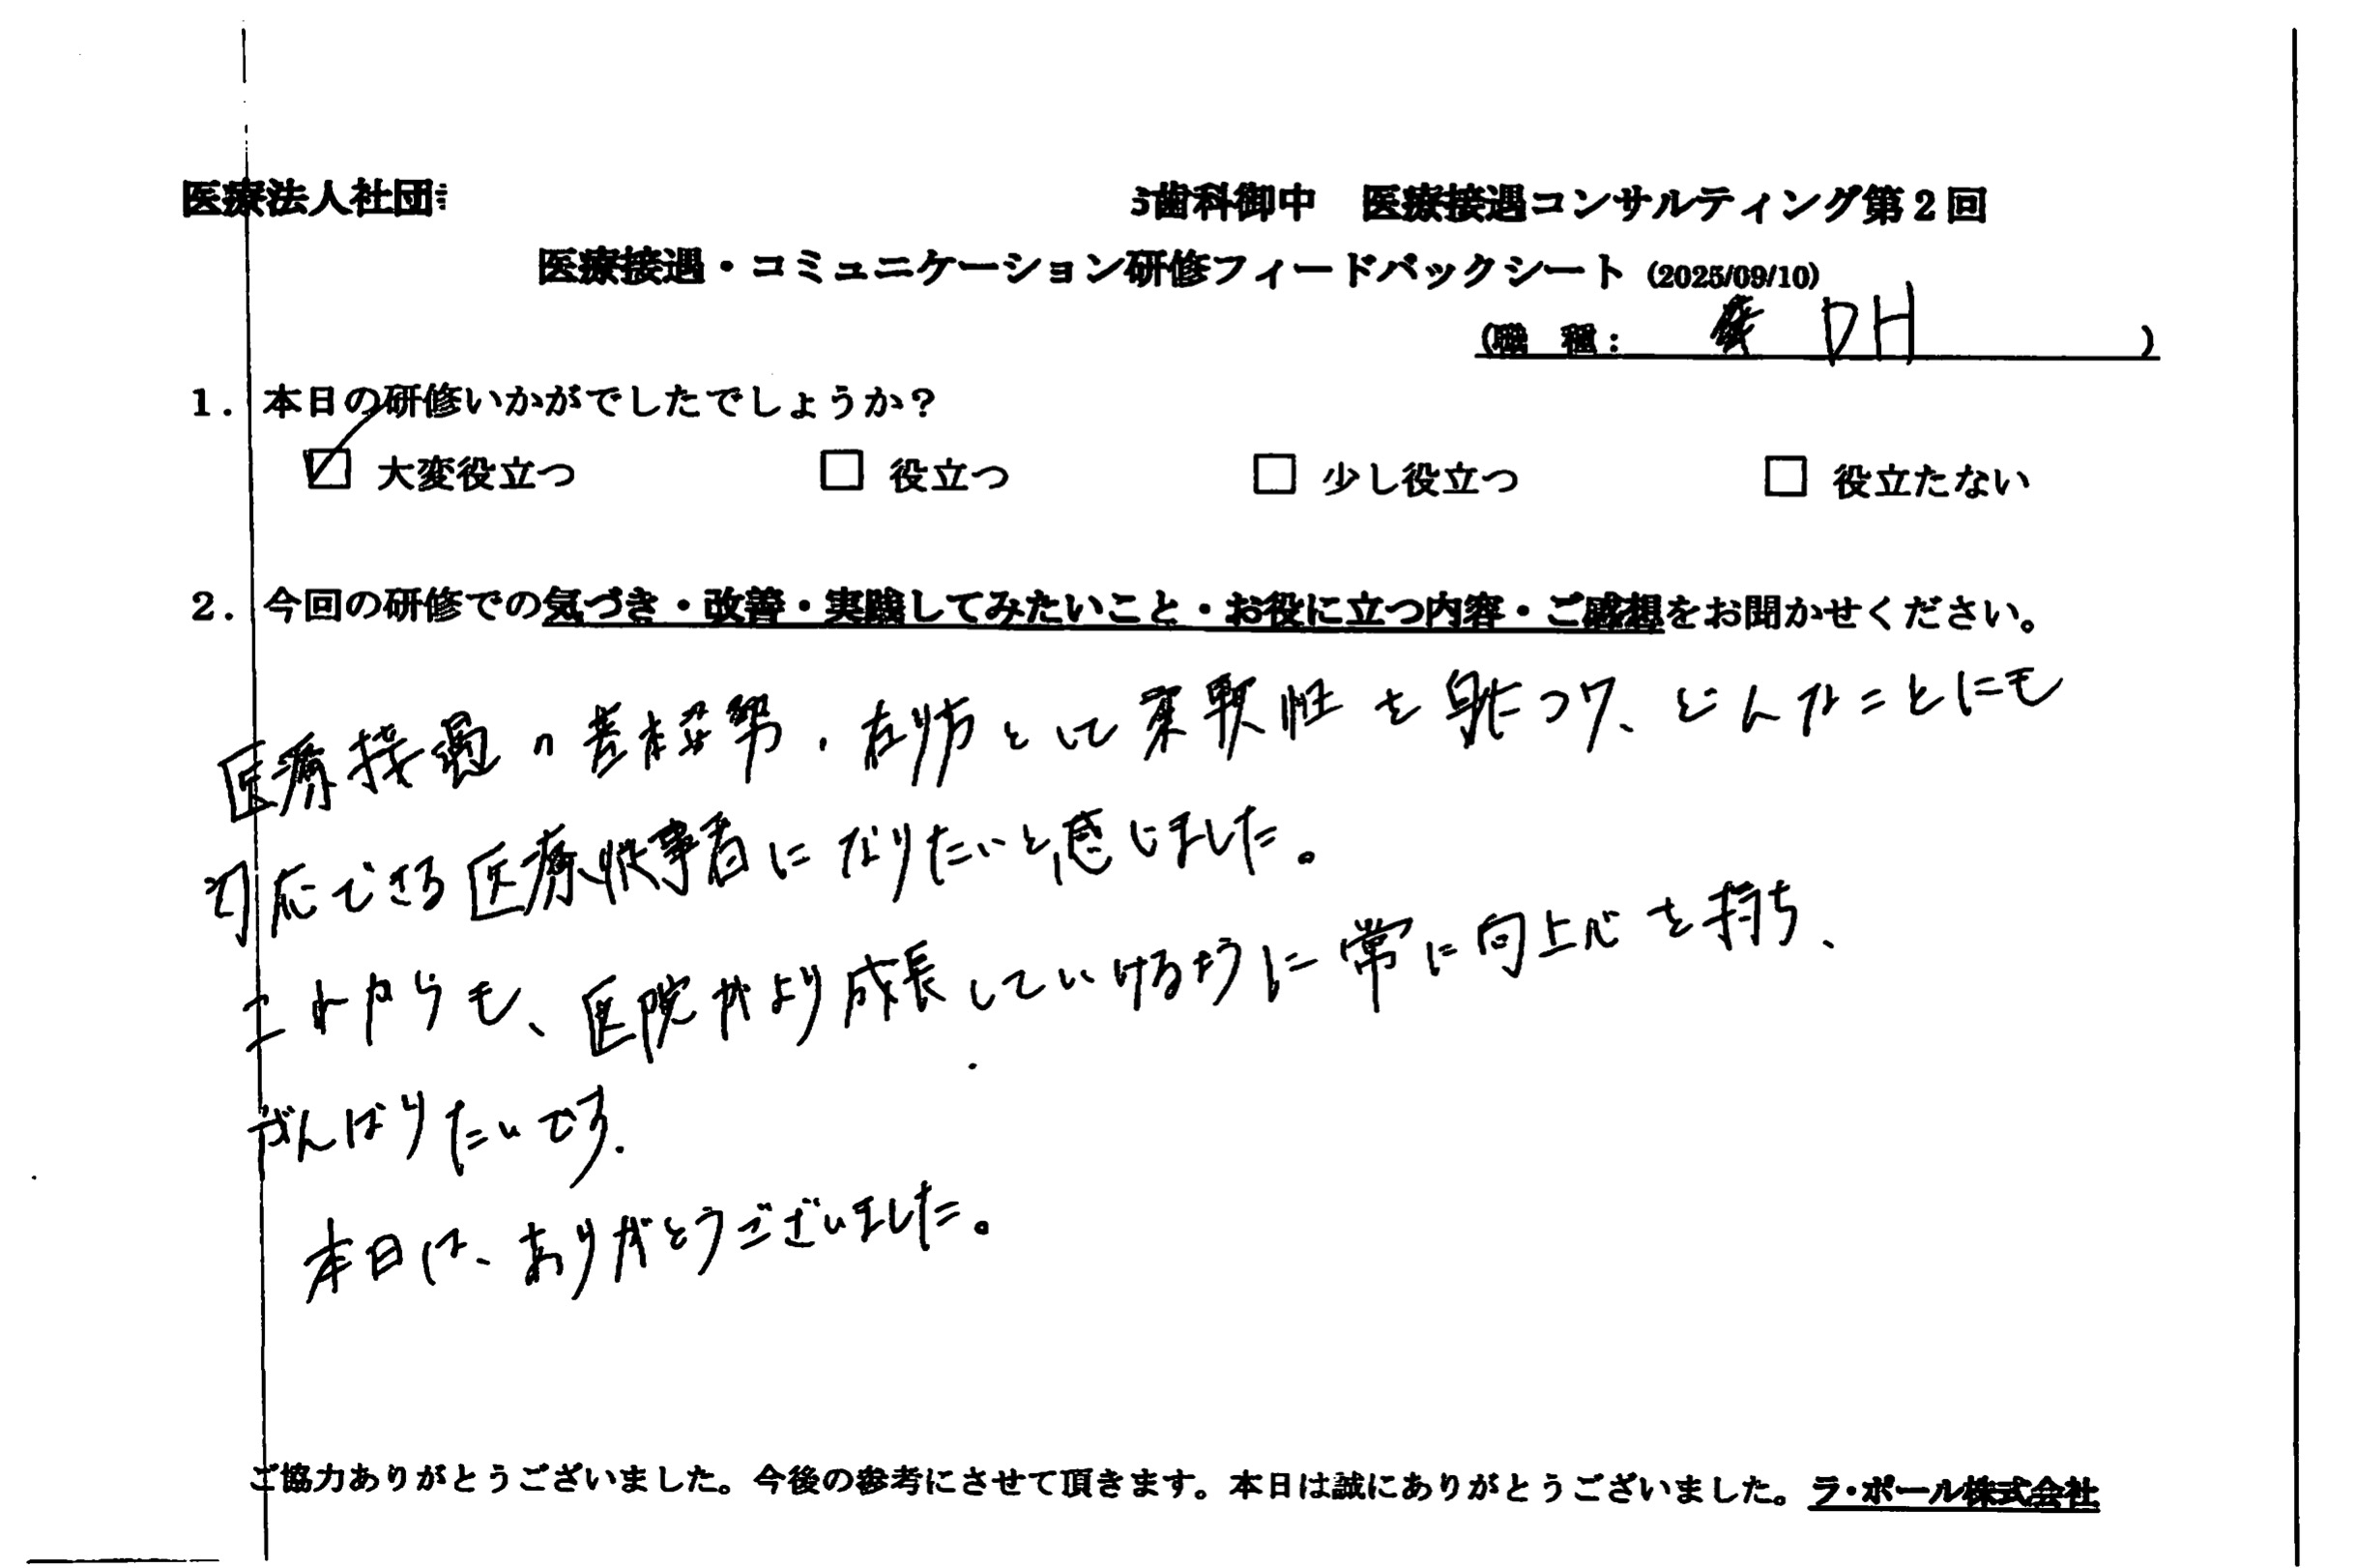 医療法人社団
歯科御中 医療接遇コンサルティング第2回
医療接遇・コミュニケーション研修フィードバックシート (2025/09/10)
(職 種: DH )
1. 本日の研修いかがでしたでしょうか?
☑ 大変役立つ □ 役立つ □ 少し役立つ □ 役立たない
2. 今回の研修での気づき・改善・実践してみたいこと・お役に立つ内容・ご感想をお聞かせください。
医療接遇の基本姿勢、在り方として柔軟性を身につけ、どんなことにも
対応できる医療従事者になりたいと感じました。
これからも、医院がより成長していけるように常に向上心を持ち、
がんばりたいです.
本日は、ありがとうございました。
ご協力ありがとうございました。今後の参考にさせて頂きます。本日は誠にありがとうございました。ラ・ポール株式会社